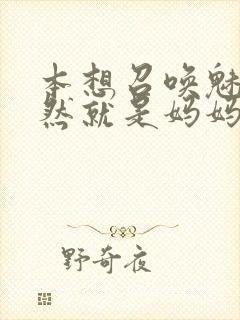 本想召唤魅
然就是妈妈
野奇夜